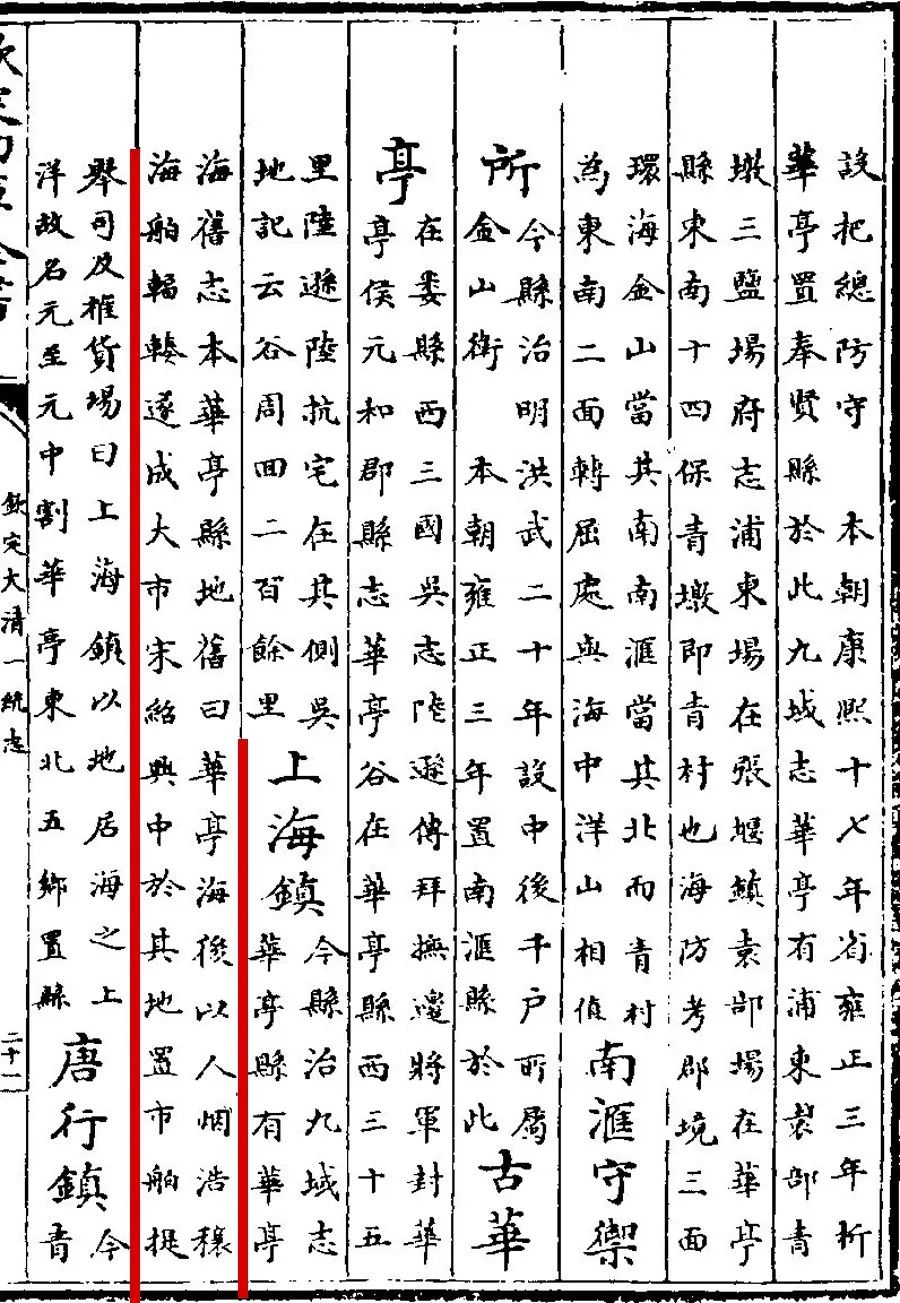 設把總防守　本朝康熙十七年省雍正三年析
華亭置奉賢縣於此九域志華亭有浦東袁部青
墩三鹽場府志浦東場在張堰鎮袁部場在華亭
縣東南十四保青墩即青村也海防考郡境三面
環海金山當其南南滙當其北而青村
為東南二面轉屈處與海中洋山相值
南滙守禦
所
今縣治明洪武二十年設中後千戶所屬
金山衛　本朝雍正三年置南滙縣於此
古華
亭
在婁縣西三國吳志陸遜傳拜撫邊將軍封華
亭侯元和郡縣志華亭谷在華亭縣西三十五
里陸遜陸抗宅在其側吳
地記云谷周回二百餘里
上海鎮
今縣治九域志
華亭縣有華亭
海舊志本華亭縣地舊曰華亭海後以人烟浩穰
海舶輻輳遂成大市宋紹興中於其地置市舶提
舉司及榷貨場曰上海鎮以地居海之上
洋故名元至元中割華亭東北五鄉置縣
唐行鎮
今
青
欽定四庫全書
欽定大清一統志
二十一